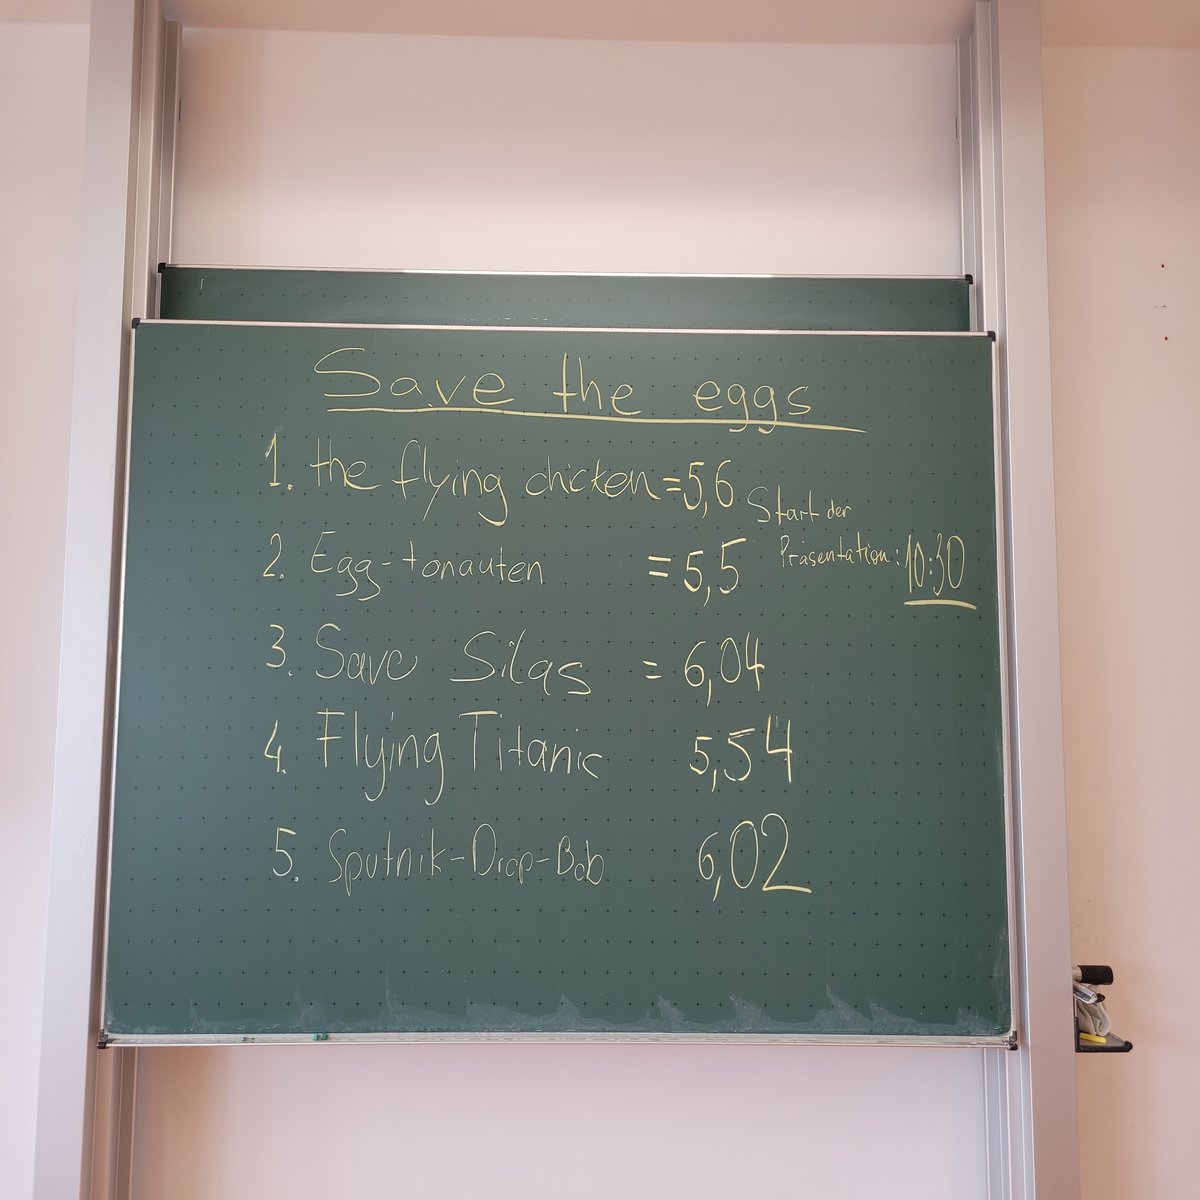 Save the eggs
1. the flying chicken = 5,6
Start der
Präsentation: 10:30
2. Egg-tonauten = 5,5
3. Save Silas = 6,04
4. Flying Titanic 5,54
5. Sputnik-Drop-Bob 6,02